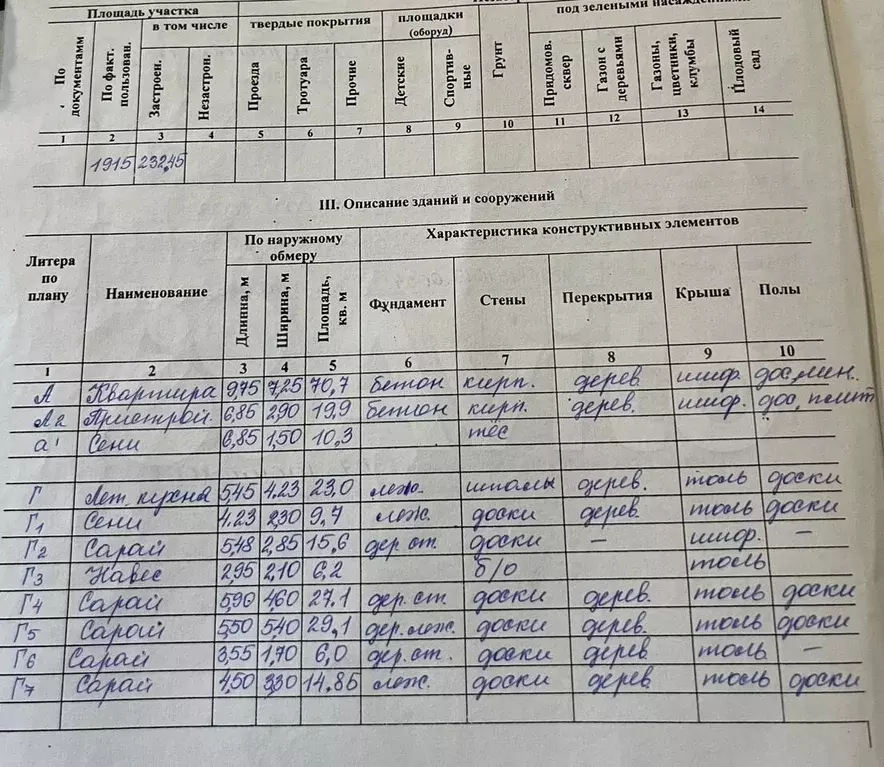 Площадь участка
в том числе
твердые покрытия
площадки
(оборуд)
под зелеными насаждениями
По документамм
По факт. пользован.
Застроен.
Незастрон.
Проезда
Тротуара
Прочие
Детские
Спортив-ные
Грунт
Придомов. сквер
Газон с деревьями
Газоны, цветники, клумбы
Плодовый сад
1 2 3 4 5 6 7 8 9 10 11 12 13 14
1915 232,45
III. Описание зданий и сооружений
Литера по плану
Наименование
По наружному обмеру
Характеристика конструктивных элементов
Длинна, м
Ширина, м
Площадь, кв. м
Фундамент
Стены
Перекрытия
Крыша
Полы
1 2 3 4 5 6 7 8 9 10
А Квартира 9,75 7,25 70,7 бетон кирп. дерев. шиф. дос,лин.
А2 Пристрой. 6,85 2,90 19,9 бетон кирп. дерев. шиф. дос,
а1 Сени 6,85 1,50 10,3 тёс
Г Лет. кухня 5,45 4.23 23,0 леж. шпалы дерев. толь доски
Г1 Сени 4.23 2,30 9,7 леж. доски дерев. толь доски
Г2 Сарай 5,48 2,85 15,6 дер. ст. доски — шиф. —
Г3 Навес 2,95 2,10 6,2 б/о толь
Г4 Сарай 5,90 4,60 27.1 дер. ст. доски дерев. толь доски
Г5 Сарай 5,50 5,40 29,1 дер. леж. доски дерев. толь доски
Г6 Сарай 3,55 1,70 6,0 дер. ст. доски дерев толь —
Г7 Сарай 4,50 3,30 14,85 леж. доски дерев толь доски